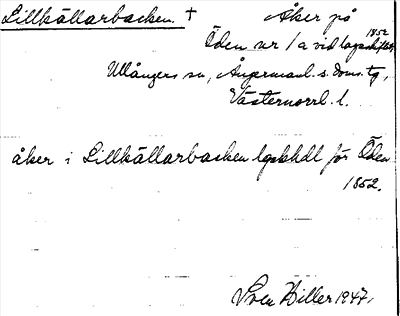 Lillkällarbacken. † Åker på
Öden nr 1 a vid lagaskiftet 1852
Ullångers sn, Ångermanl. s. doms. tg,
Västernorrl. l.
åker i Lillkällarbacken lgskhdl för Öden
1852.
Sven Hiller 1947.